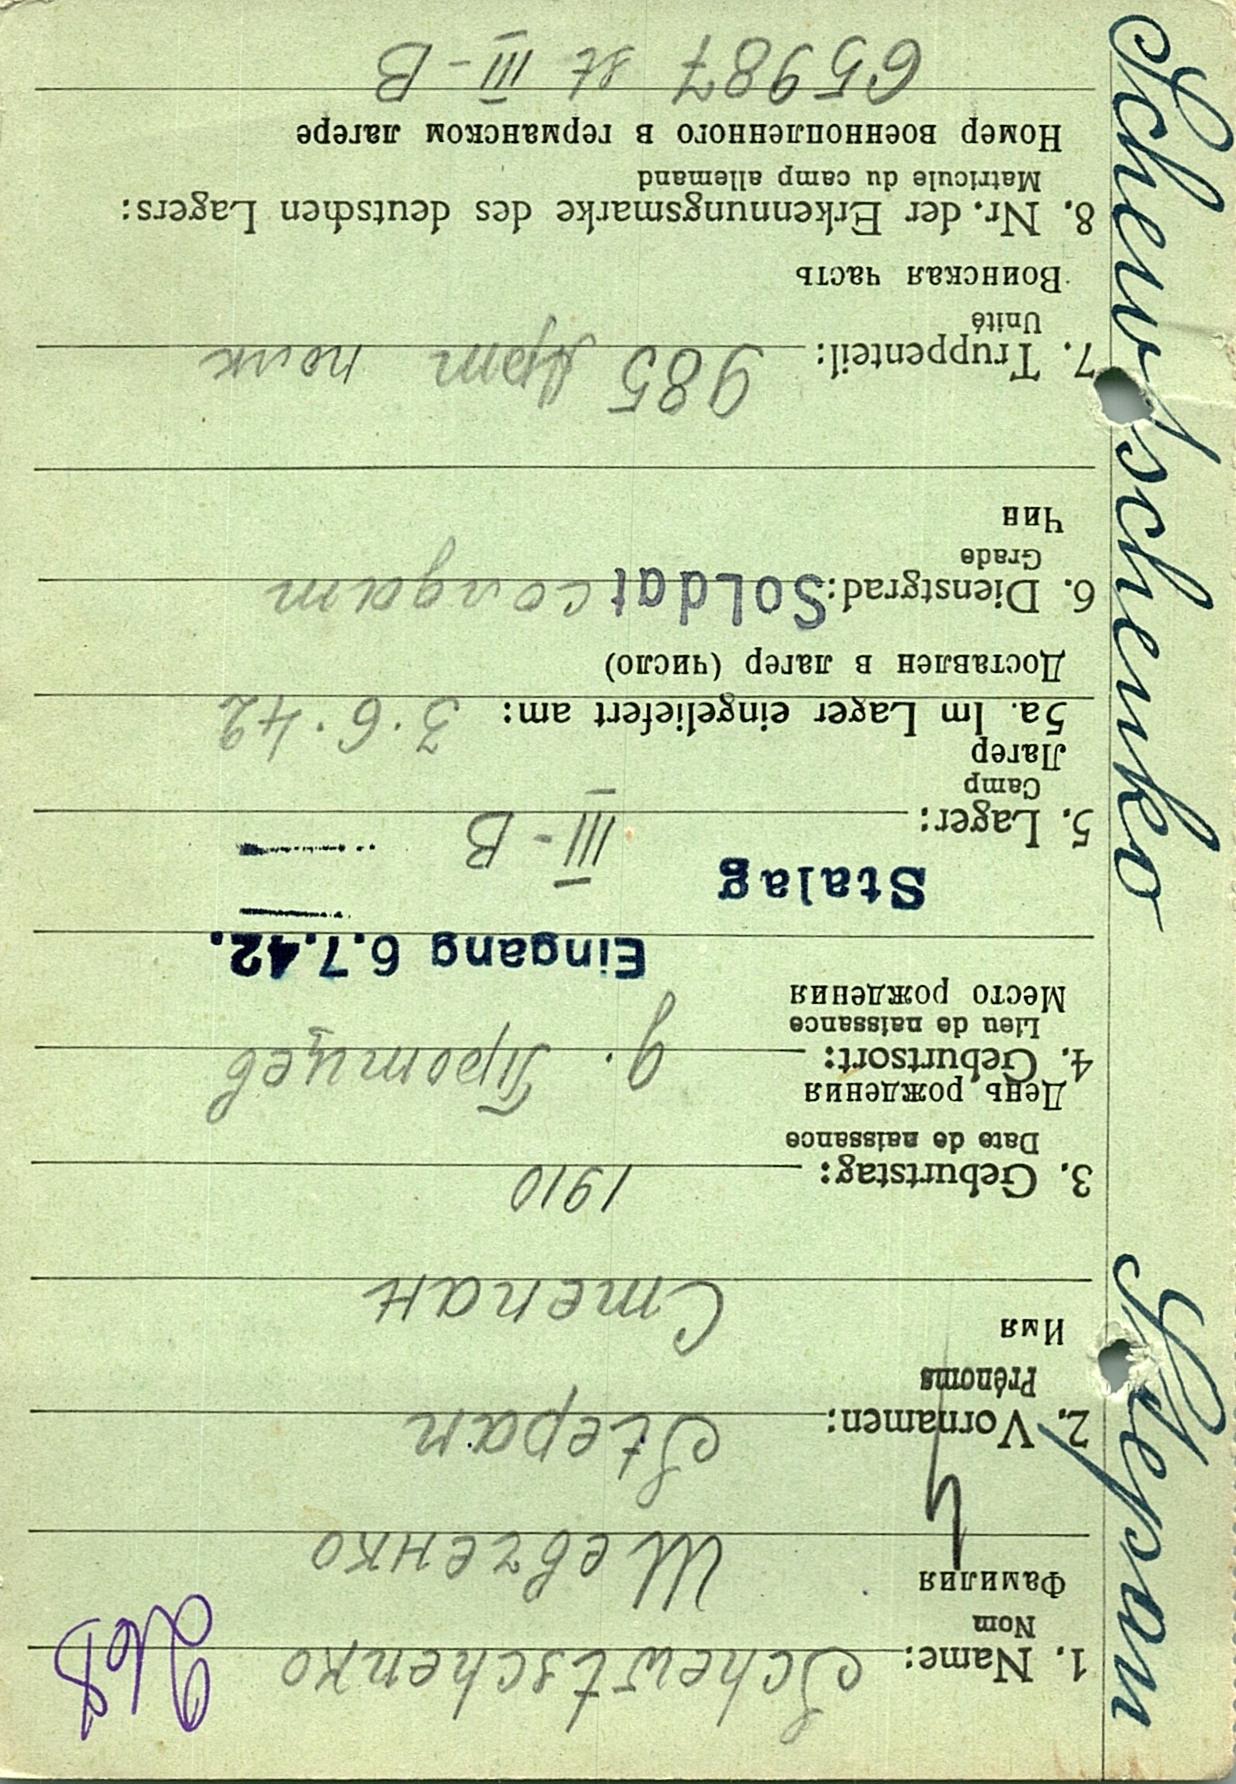 Schewtschenko Stepan
1. Name: Schewtschenko
Nom
Фамилия
Шевченко
2. Vornamen: Stepan
Prénoms
Имя
Степан
3. Geburtstag: 1910
Date de naissance
День рождения
4. Geburtsort: д.
Lieu de naissance
Место рождения
Eingang 6.7.42.
Stalag
5. Lager: III-B
Camp
Лагер
5a. Im Lager eingeliefert am: 3.6.42
Доставлен в лагер (число)
6. Dienstgrad: Soldat солдат
Grade
Чин
7. Truppenteil: 985 Арт полк
Unité
Воинская часть
8. Nr. der Erkennungsmarke des deutschen Lagers:
Matricule du camp allemand
Номер военнопленного в германском лагере
65987 st III-B